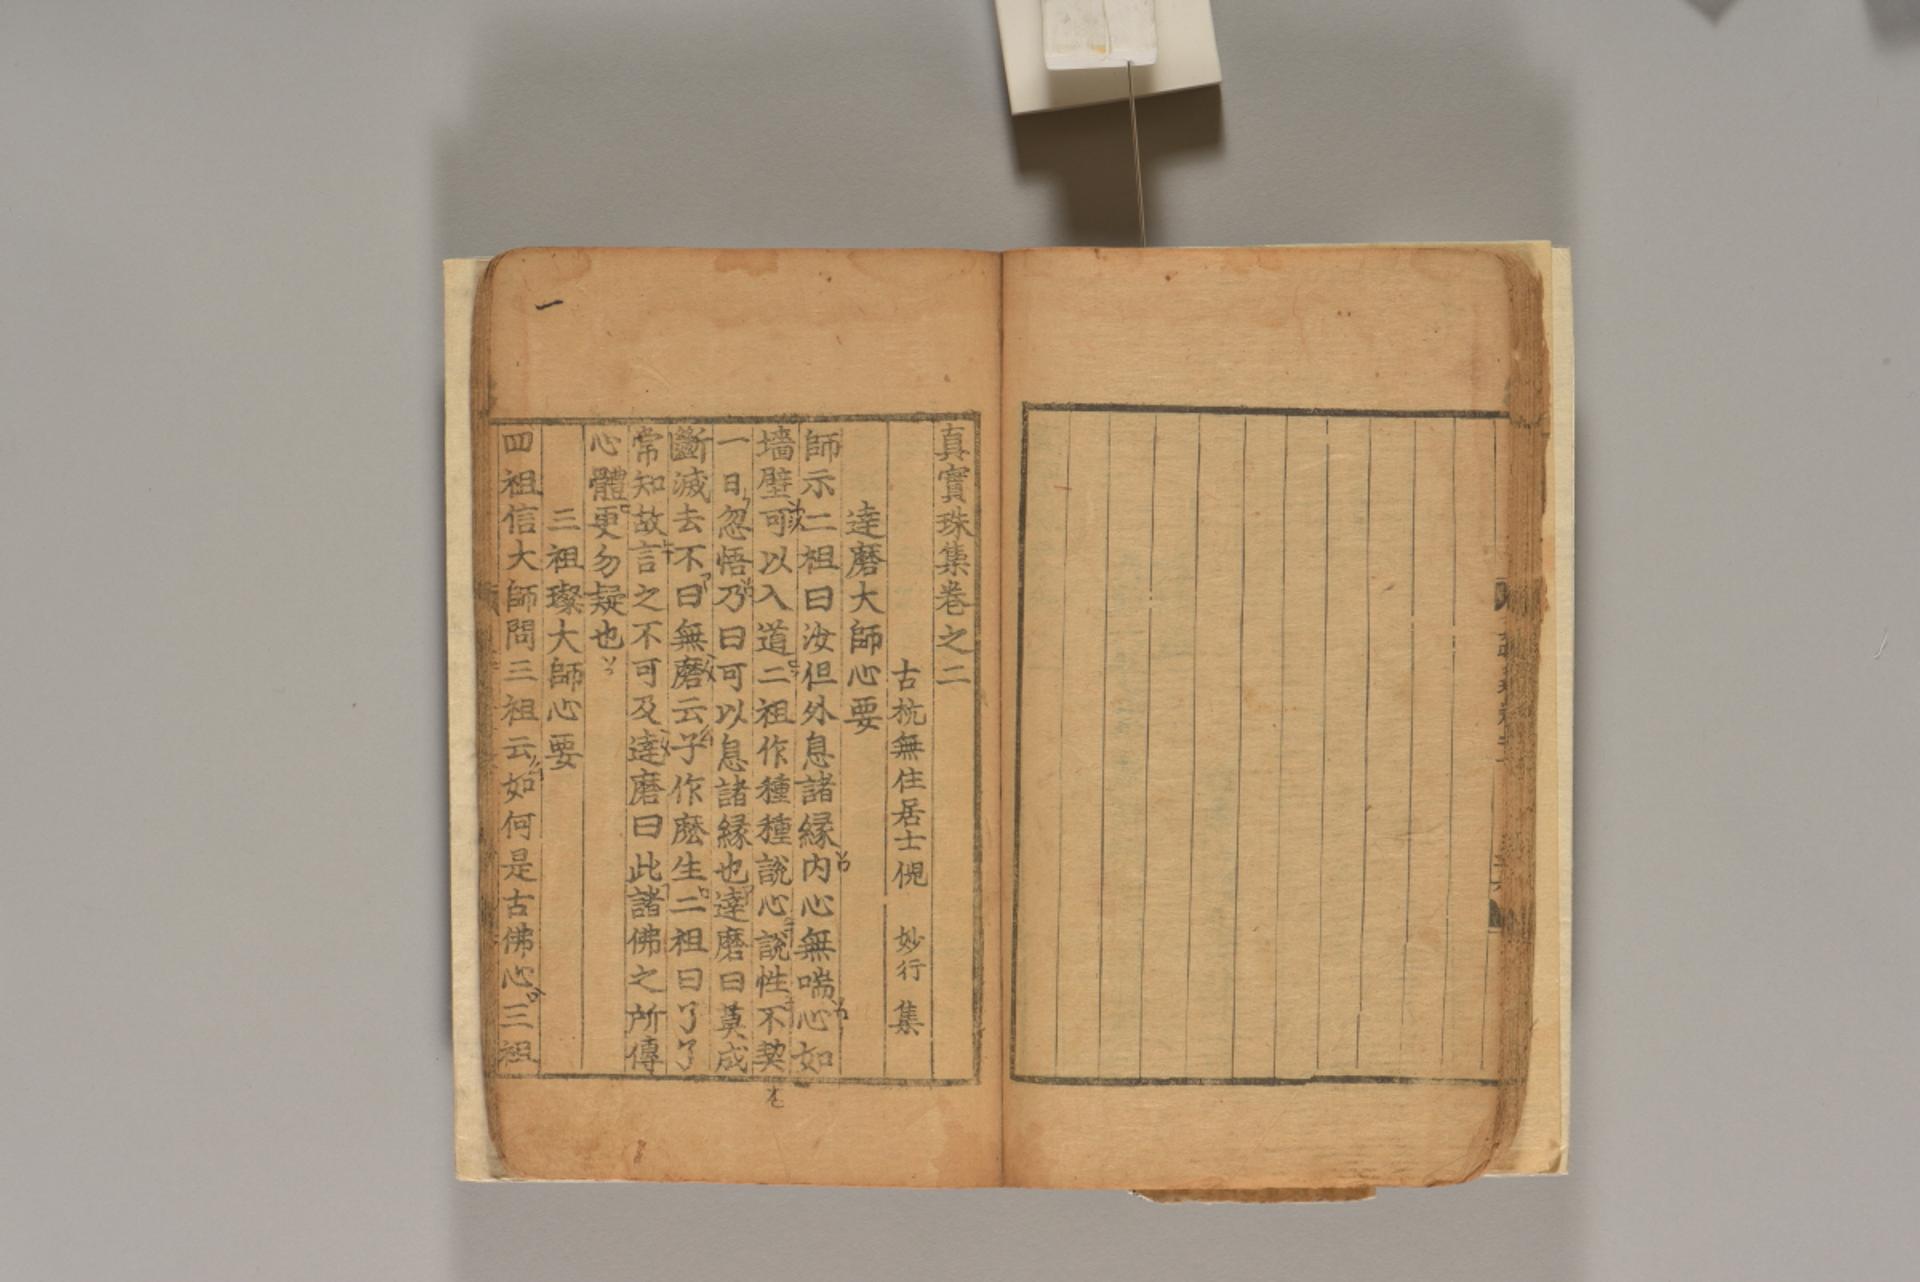 真實珠集卷之二
古杭無住居士俔 妙行 集
達磨大師心要
師示二祖曰汝但外息諸緣内心無喘心如
墻壁可以入道二祖作種種說心說性不契
一日忽悟乃曰可以息諸緣也達磨曰莫成
斷滅去不曰無磨云子作麽生二祖曰了了
常知故言之不可及達磨曰此諸佛之所傳
心體更勿疑也
三祖璨大師心要
四祖信大師問三祖云如何是古佛心三祖